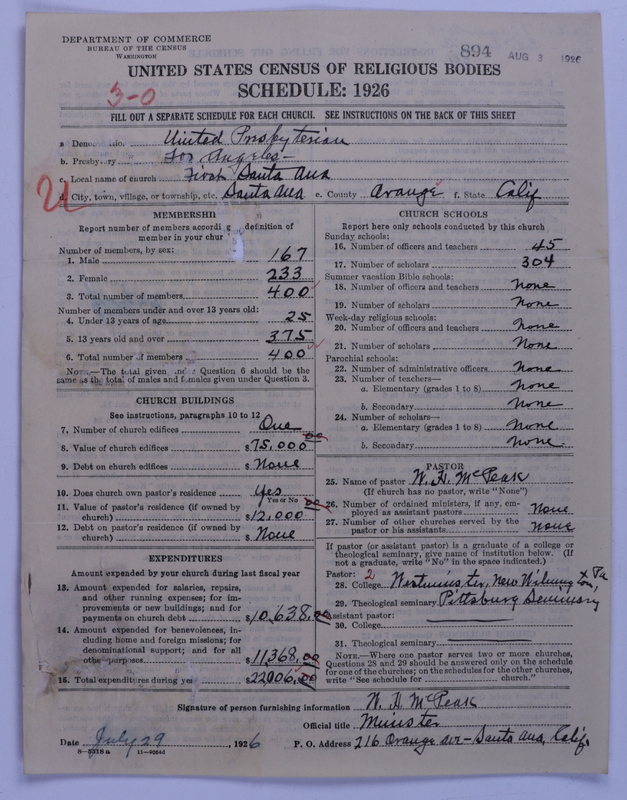 DEPARTMENT OF COMMERCE
BUREAU OF THE CENSUS
WASHINGTON
894 AUG 3 1926
UNITED STATES CENSUS OF RELIGIOUS BODIES
SCHEDULE: 1926
3-0
FILL OUT A SEPARATE SCHEDULE FOR EACH CHURCH. SEE INSTRUCTIONS ON THE BACK OF THIS SHEET
a Denom United Presbyterian
b. Presbytery Los Angeles
c. Local name of church First Santa Ana
21
d. City, town, village, or township, etc. Santa Ana e. County Orange f. State Calif
MEMBERSHI
Report number of members accordi g definition of
member in your chur
Number of members, by sex:
1. Male 167
2. Female 233
3. Total number of members 400
Number of members under and over 13 years old:
4. Under 13 years of age 25
5. 13 years old and over 375
6. Total number of members 400
NOTE.—The total given under Question 6 should be the
same as the total of males and females given under Question 3.
CHURCH BUILDINGS
See instructions, paragraphs 10 to 12
7. Number of church edifices One
8. Value of church edifices $75,000.00
9. Debt on church edifices $ None
10. Does church own pastor's residence Yes
Yes or No
11. Value of pastor's residence (if owned by
church) $12,000.00
12. Debt on pastor's residence (if owned by
church) $ None
EXPENDITURES
Amount expended by your church during last fiscal year
13. Amount expended for salaries, repairs,
and other running expenses; for im-
provements or new buildings; and for
payments on church debt $10,638.00
14. Amount expended for benevolences, in-
cluding home and foreign missions; for
denominational support; and for all
other purposes $11,368.00
15. Total expenditures during year $22006.00
CHURCH SCHOOLS
Report here only schools conducted by this church
Sunday schools:
16. Number of officers and teachers 45
17. Number of scholars 304
Summer vacation Bible schools:
18. Number of officers and teachers None
19. Number of scholars None
Week-day religious schools:
20. Number of officers and teachers None
21. Number of scholars None
Parochial schools:
22. Number of administrative officers None
23. Number of teachers—
a. Elementary (grades 1 to 8) None
b. Secondary None
24. Number of scholars—
a. Elementary (grades 1 to 8) None
b. Secondary None
PASTOR
25. Name of pastor W. H. McPeak
(If church has no pastor, write "None")
26. Number of ordained ministers, if any, em-
ployed as assistant pastors None
27. Number of other churches served by the
pastor or his assistants None
If pastor (or assistant pastor) is a graduate of a college or
theological seminary, give name of institution below. (If
not a graduate, write "No" in the space indicated.)
Pastor: 2
28. College Westminster, New Wilmington, Pa
29. Theological seminary Pittsburg Seminary
Assistant pastor:
30. College
31. Theological seminary
NOTE.—Where one pastor serves two or more churches,
Questions 28 and 29 should be answered only on the schedule
for one of the churches; on the schedules for the other churches,
write "See schedule for church."
Signature of person furnishing information W. H. McPeak
Official title Minister
Date July 29 1926 P. O. Address 216 Orange ave - Santa Ana, Calif.
8-5318 a 11-9064d